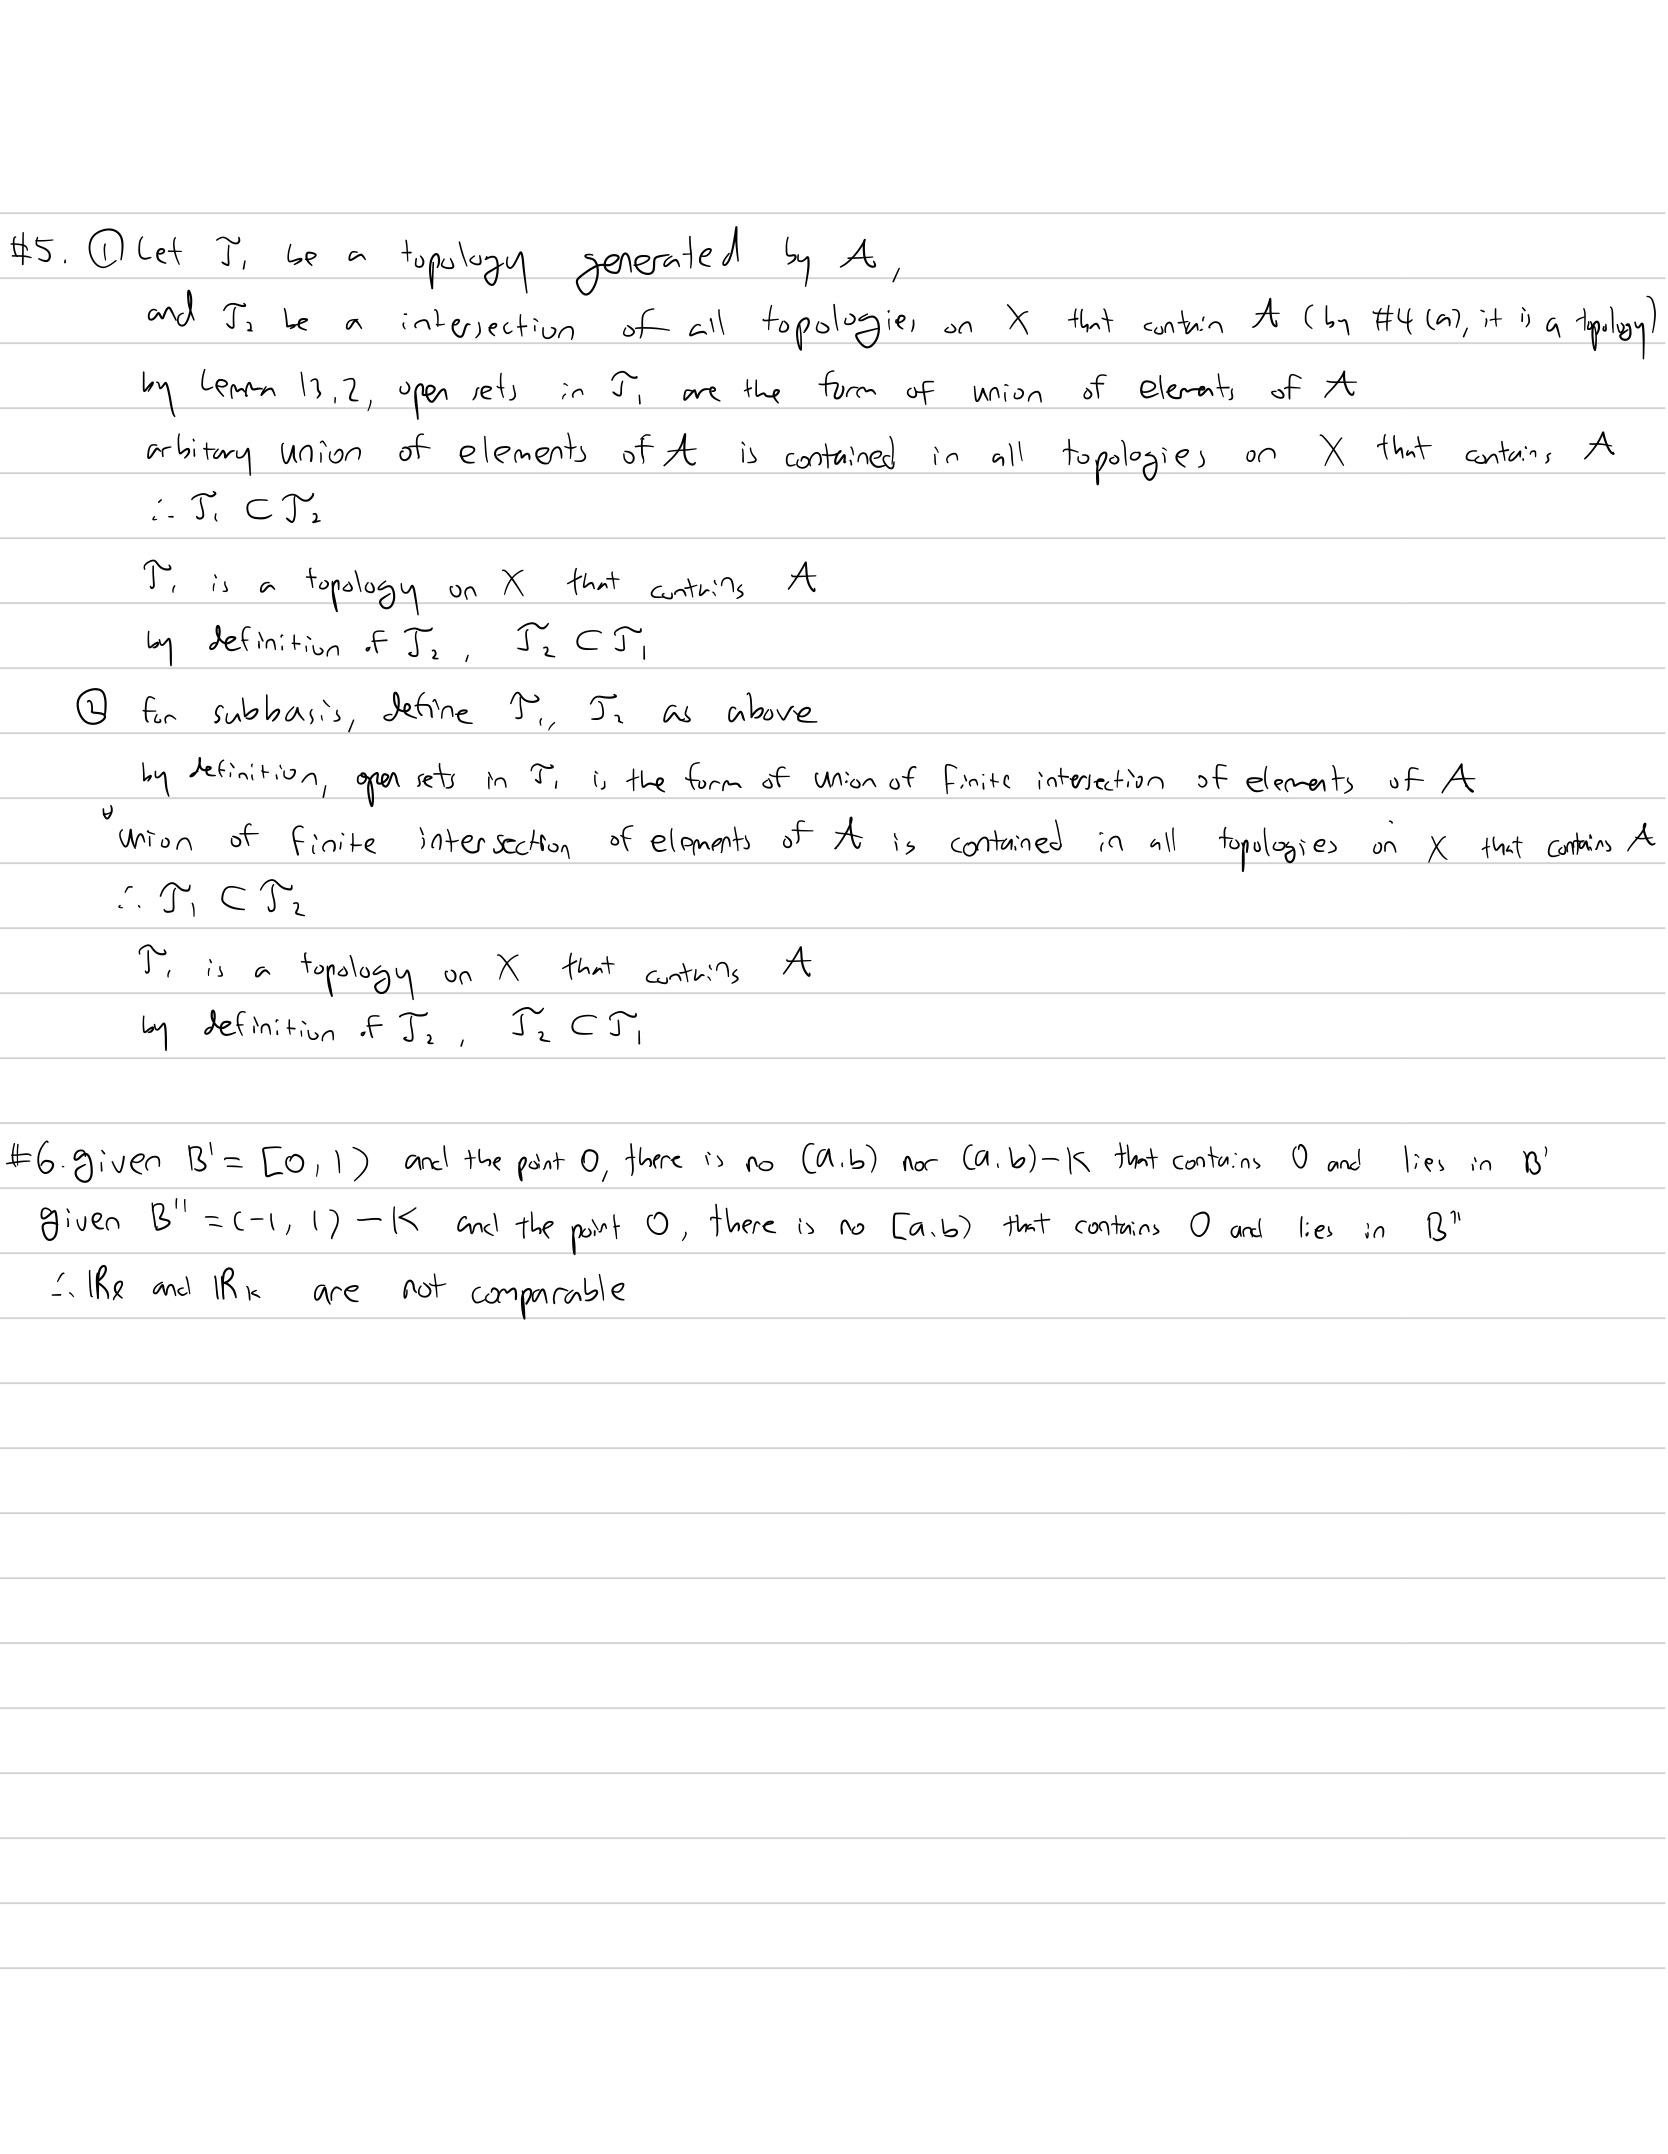 #5. ① Let 𝒯₁ be a topology generated by 𝒜,
and 𝒯₂ be a intersection of all topologies on X that contain 𝒜 (by #4 (a), it is a topology)
by Lemma 13.2, open sets in 𝒯₁ are the form of union of elements of 𝒜
arbitary union of elements of 𝒜 is contained in all topologies on X that contains 𝒜
∴ 𝒯₁ ⊂ 𝒯₂
𝒯₁ is a topology on X that contains 𝒜
by definition of 𝒯₂, 𝒯₂ ⊂ 𝒯₁
② for subbasis, define 𝒯₁, 𝒯₂ as above
by definition, open sets in 𝒯₁ is the form of union of finite intersection of elements of 𝒜
∀ union of finite intersection of elements of 𝒜 is contained in all topologies on X that contains 𝒜
∴ 𝒯₁ ⊂ 𝒯₂
𝒯₁ is a topology on X that contains 𝒜
by definition of 𝒯₂, 𝒯₂ ⊂ 𝒯₁
#6. given B' = [0, 1) and the point 0, there is no (a.b) nor (a.b)-K that contains 0 and lies in B'
given B'' = (-1, 1) - K and the point 0, there is no [a.b) that contains 0 and lies in B''
∴ ℝℓ and ℝₖ are not comparable